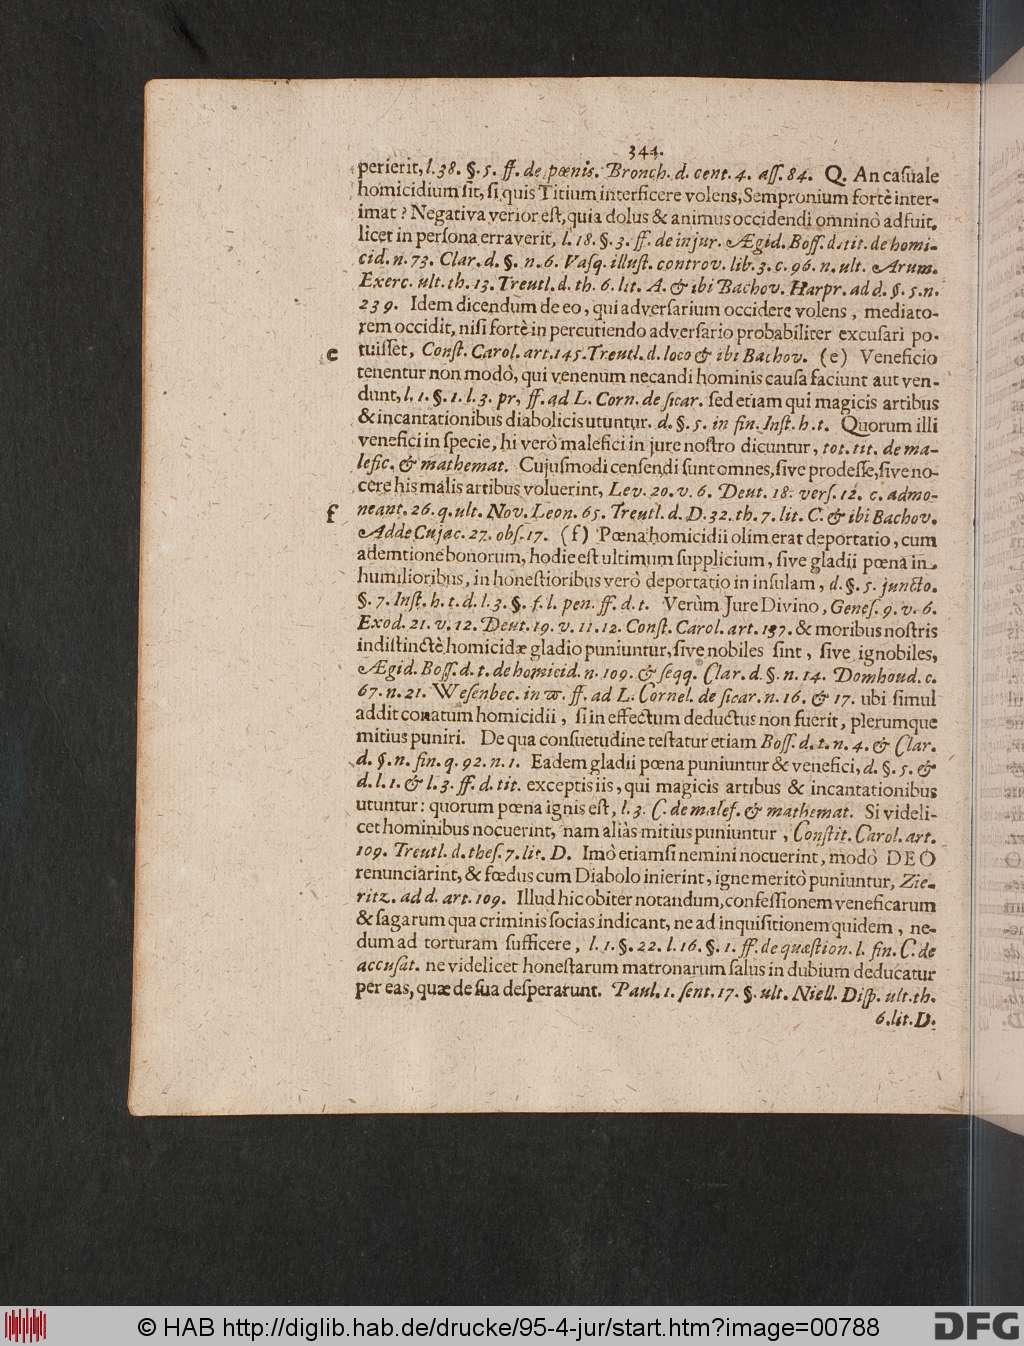 344.
perierit, l. 38. §. 5. ff. de pœnis. Bronch. d. cent. 4. aſſ. 84. Q. An caſuale
homicidium ſit, ſi quis Titium interficere volens, Sempronium fortè inter-
imat? Negativa verior eſt, quia dolus & animus occidendi omninò adfuit,
licet in perſona erraverit, l. 18. §. 3. ff. de injur. Ægid. Boſſ. d. tit. de homi-
cid. n. 73. Clar. d. §. n. 6. Vaſq. illuſt. controv. lib. 3. c. 96. n. ult. Arum.
Exerc. ult. th. 13. Treutl. d. th. 6. lit. A. & ibi Bachov. Harpr. ad d. §. 5. n.
239. Idem dicendum de eo, qui adverſarium occidere volens, mediato-
rem occidit, niſi fortè in percutiendo adverſario probabiliter excuſari po-
e tuiſſet, Conſt. Carol. art. 145. Treutl. d. loco & ibi Bachov. (e) Veneficio
tenentur non modò, qui venenum necandi hominis cauſa faciunt aut ven-
dunt, l. 1. §. 1. l. 3. pr. ff. ad L. Corn. de ſicar. ſed etiam qui magicis artibus
& incantationibus diabolicis utuntur. d. §. 5. in fin. Inſt. h. t. Quorum illi
venefici in ſpecie, hi verò malefici in jure noſtro dicuntur, tot. tit. de ma-
lefic. & mathemat. Cujuſmodi cenſendi ſunt omnes, ſive prodeſſe, ſive no-
cere his malis artibus voluerint, Lev. 20. v. 6. Deut. 18. verſ. 12. c. admo-
f neant. 26. q. ult. Nov. Leon. 65. Treutl. d. D. 32. th. 7. lit. C. & ibi Bachov.
Adde Cujac. 27. obſ. 17. (f) Pœna homicidii olim erat deportatio, cum
ademtione bonorum, hodie eſt ultimum ſupplicium, ſive gladii pœna in
humilioribus, in honeſtioribus verò deportatio in inſulam, d. §. 5. juncto.
§. 7. Inſt. h. t. d. l. 3. §. f. l. pen. ff. d. t. Verùm Jure Divino, Geneſ. 9. v. 6.
Exod. 21. v. 12. Deut. 19. v. 11. 12. Conſt. Carol. art. 137. & moribus noſtris
indiſtinctè homicidæ gladio puniuntur, ſive nobiles ſint, ſive ignobiles,
Ægid. Boſſ. d. t. de homicid. n. 109. & ſeqq. Clar. d. §. n. 14. Domhoud. c.
67. n. 21. Weſenbec. in ϖ. ff. ad L. Cornel. de ſicar. n. 16. & 17. ubi ſimul
addit conatum homicidii, ſi in effectum deductus non fuerit, plerumque
mitius puniri. De qua conſuetudine teſtatur etiam Boſſ. d. t. n. 4. & Clar.
d. §. n. fin. q. 92. n. 1. Eadem gladii pœna puniuntur & venefici, d. §. 5. &
d. l. 1. & l. 3. ff. d. tit. exceptis iis, qui magicis artibus & incantationibus
utuntur: quorum pœna ignis eſt, l. 3. C. de malef. & mathemat. Si videli-
cet hominibus nocuerint, nam aliàs mitius puniuntur, Conſtit. Carol. art.
109. Treutl. d. theſ. 7. lit. D. Imò etiamſi nemini nocuerint, modò DEO
renunciarint, & fœdus cum Diabolo inierint, igne meritò puniuntur, Zie-
ritz. ad d. art. 109. Illud hic obiter notandum, confeſſionem veneficarum
& ſagarum qua criminis ſocias indicant, ne ad inquiſitionem quidem, ne-
dum ad torturam ſufficere, l. 1. §. 22. l. 16. §. 1. ff. de quæſtion. l. fin. C. de
accuſat. ne videlicet honeſtarum matronarum ſalus in dubium deducatur
per eas, quæ de ſua deſperarunt. Paul. 1. ſent. 17. §. ult. Niell. Diſp. ult. th.
6. lit. D.
© HAB http://diglib.hab.de/drucke/95-4-jur/start.htm?image=00788
DFG